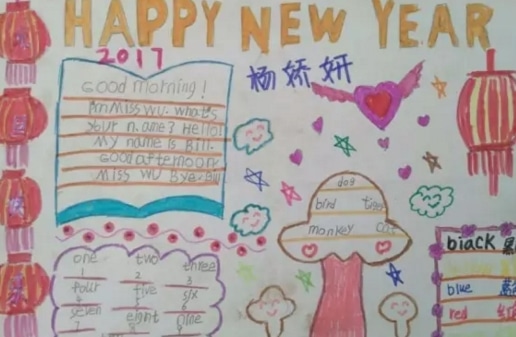 HAPPY NEW YEAR
2017
杨娇妍
Good morning!
I'm Miss Wu. What's
your name? Hello!
My name is Bill.
Good afternoon
Miss Wu Bye-
dog
bird tiger
monkey cat
one two three
1 2 3
four five six
4 5 6
seven eight nine
7 8 9
black
blue
red 红